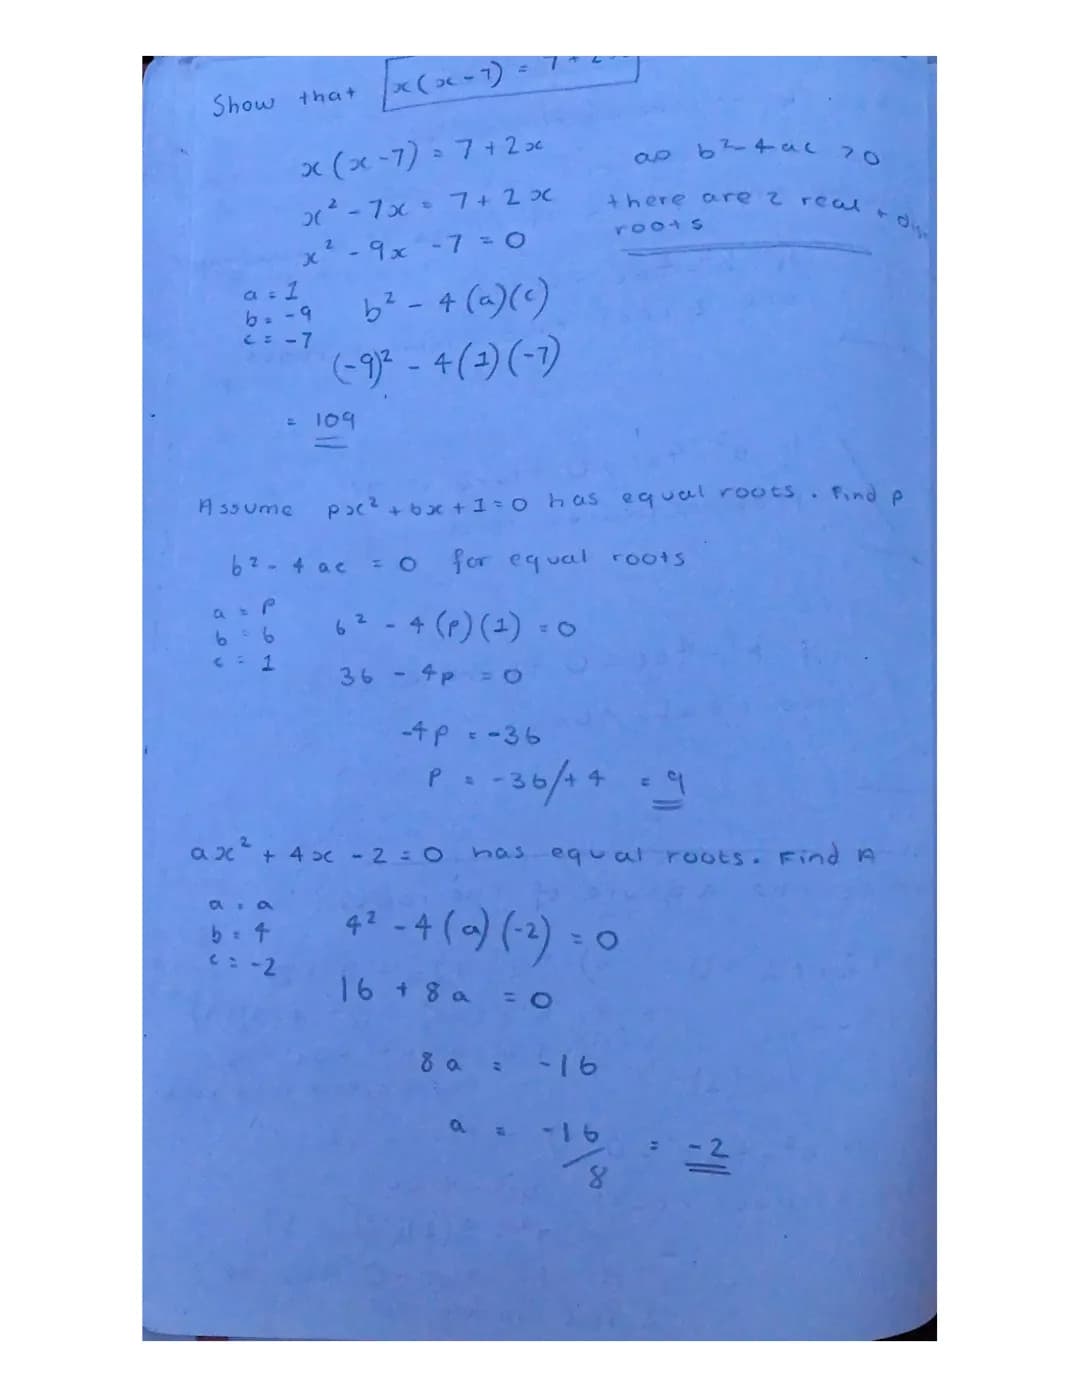 Show that x(x-7) = 7+2
x(x-7) = 7+2x
x² - 7x = 7+2x
x² - 9x - 7 = 0
as b²-4ac >0
there are 2 real +
roots
a = 1
b = -9
c = -7
b² - 4(a)(c)
(-9)² - 4(1)(-7)
= 109
Assume px² + 6x + 1 = 0 has equal roots. Find p
b² - 4ac = 0 for equal roots
a = p
b = 6
c = 1
6² - 4(p)(1) = 0
36 - 4p = 0
-4p = -36
p = -36/+4 = 9
ax² + 4x - 2 = 0 has equal roots. Find A
a = a
b = 4
c = -2
4² - 4(a)(-2) = 0
16 + 8a = 0
8a = -16
a = -16/8 = -2